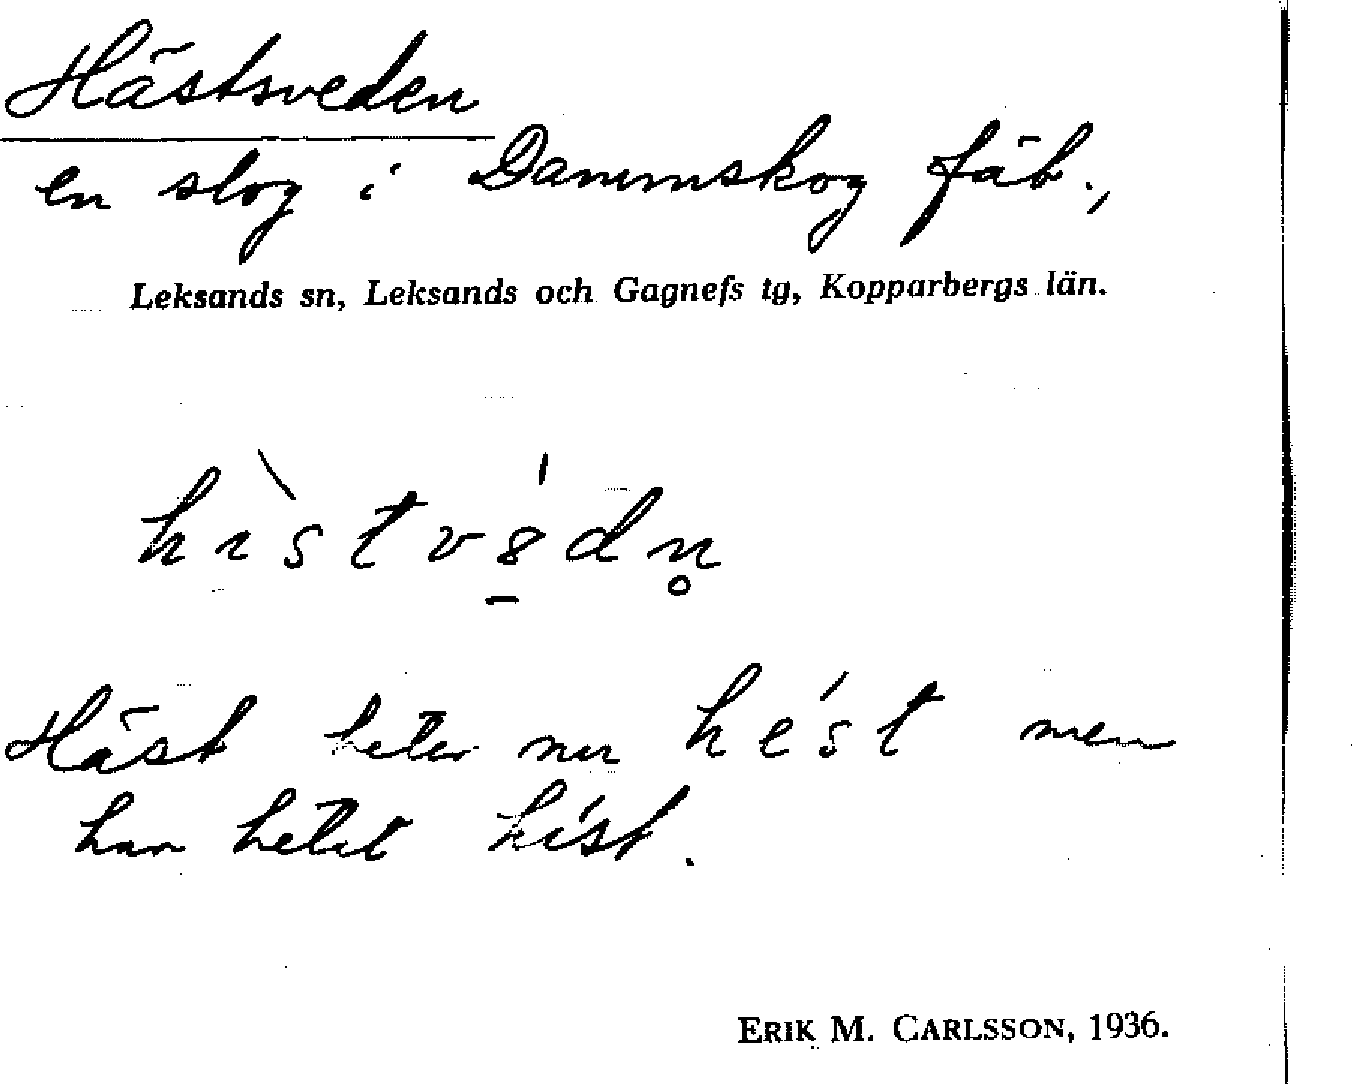 Hästsveden
en slog i Dammskog fäb.,
Leksands sn, Leksands och Gagnefs tg, Kopparbergs län.
hɪ̀stvȣ̠́dn̥
Häst heter nu hést men
har hetat híst.
ERIK M. CARLSSON, 1936.